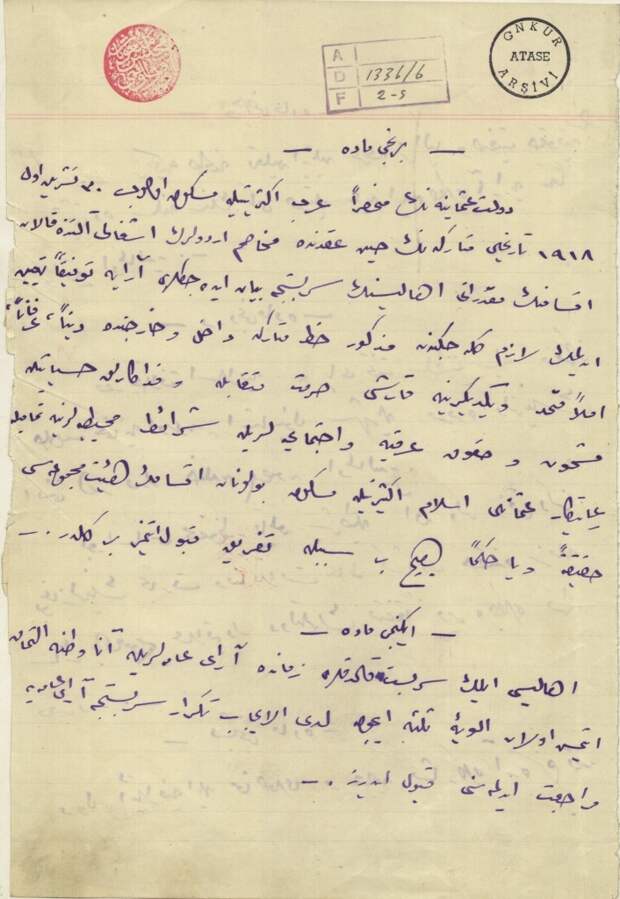 GNKUR
ATASE
ARŞİVİ
A
D 1336/6
F 2-5
— برنجی ماده —
دولت عثمانیه نك منحصراً عرب اکثریتیله مسکون اولوب ٣٠ تشرین اول
١٩١٨ تاریخلی متارکه نك حین عقدنده مخاصم اردولرك اشغالی آلتنده قالان
اقسامنك مقدراتی اهالیسنك سربستجه بیان ایده جکلری آرایه توفیقاً تعیین
ایدیلمك لازم کله جکندن مذکور خط متارکه داخل و خارجنده دیناً، عرفاناً،
املاً متحد و یکدیگرینه قارشی حرمت متقابله و فداکارلق حسیاتیله
مشحون و حقوق عرقیه و اجتماعیه لریله شرائط محیطیه لرینه تمامیله
رعایتکار عثمانلی اسلام اکثریتیله مسکون بولونان اقسامك هیئت مجموعه سی
حقیقةً ویا حکماً هیچ بر سببله تفریق قبول ایتمز بر کلدر .—
— ایکنجی ماده —
اهالیسی ایلك سربست قالدقلری زمانده آرای عامه لریله آنا وطنه التحاق
ایتمش اولان الویهٔ ثلثه ایچون لدی الایجاب تکرار سربستجه آرای عامه یه
مراجعت ایدلمه سنی قبول ایدرز .—